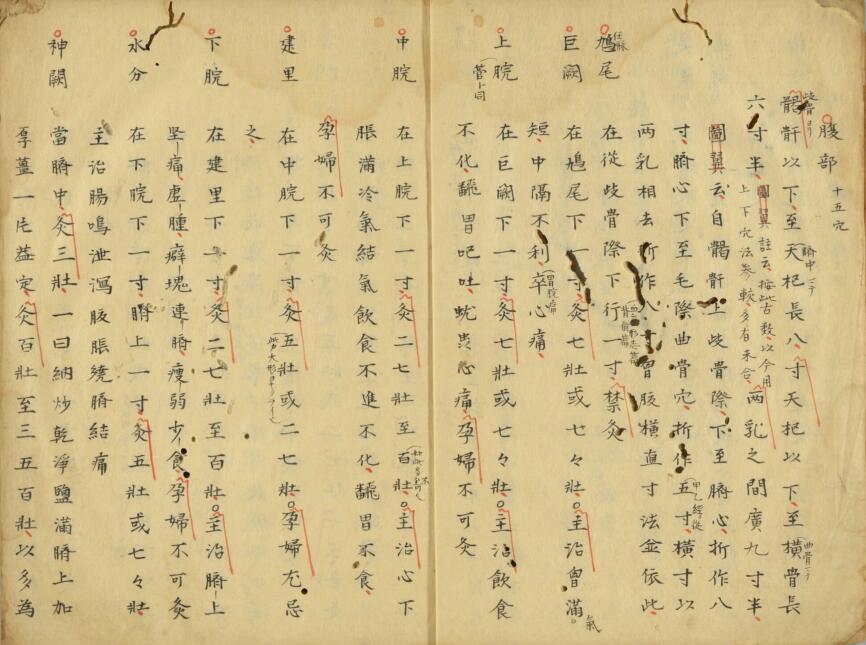 腹部 十五穴
𩩲骬以下至天枢長八寸天枢以下至横骨長
六寸半圖翼註云按此古数以今用上下穴法参較多有未合両乳之間廣九寸半
圖翼云自𩩲骬上歧骨際下至臍心折作八
寸臍心下至毛際曲骨穴折作五寸横寸以
両乳相去折作八寸胷腹横直寸法並依此
鳩尾 任脉
在從歧骨際下行一寸禁灸
巨闕
在鳩尾下一寸灸七壯或七々壯主治胷滿
氣
短中隔不利卒心痛
上脘
在巨闕下一寸灸七壯或七々壯主治飲食
不化飜胃吧吐蚘虫心痛孕婦不可灸
中脘
在上脘下一寸灸二七壯至百壯主治心下
脹滿冷氣結氣飲食不進不化飜胃不食
孕婦不可灸
建里
在中脘下一寸灸五壯或二七壯孕婦尤忌
之
下脘
在建里下一寸灸二七壯至百壯主治臍上
坚痛虚腫癖塊連臍痩弱少食孕婦不可灸
水分
在下脘下一寸臍上一寸灸五壯或七々壯
主治腸鳴泄瀉腹脹繞臍結痛
神闕
當臍中灸三壯一曰納炒乾淨鹽滿臍上加
厚薑一片蓋定灸百壯至三五百壯以多為